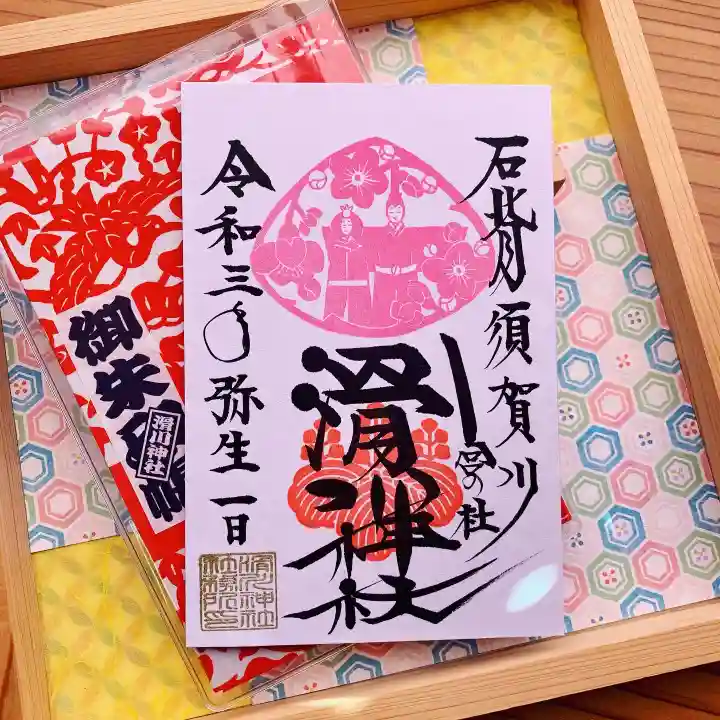 石背須賀川
宮の杜
滑川神社
令和三年 弥生一日
御朱印帳
滑川神社